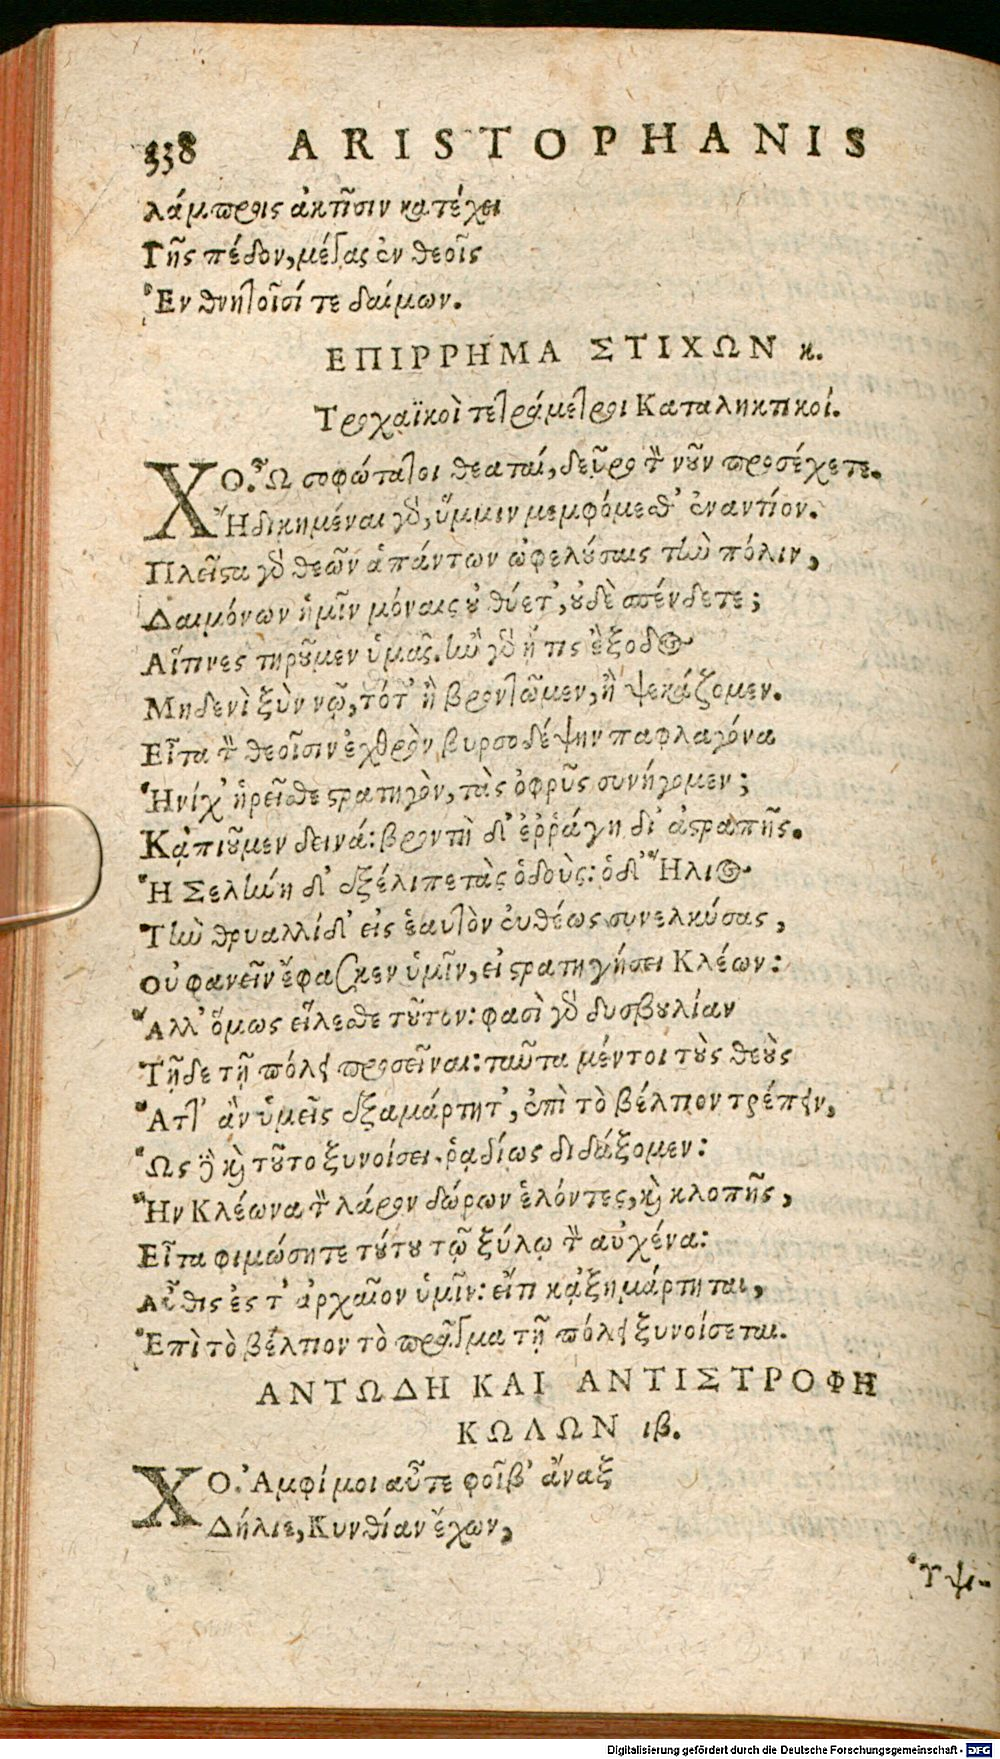 338 ARISTOPHANIS
λάμπροις ἀκτῖσιν κατέχει
Γῆς πέδον, μέγας ἐν θεοῖς
Ἐν θνητοῖσί τε δαίμων.
ΕΠΙΡΡΗΜΑ ΣΤΙΧΩΝ κ.
Τροχαϊκοὶ τετράμετροι Καταληκτικοί.
ΧΟ. Ὦ σοφώτατοι θεαταί, δεῦρο τ̀ νοῦν προσέχετε.
Ἠδικημέναι γὸ, ὔμμιν μεμφόμεσθ' ἐναντίον.
Πλεῖστα γὸ θεῶν ἁπάντων ὠφελούσαις τὴν πόλιν,
Δαιμόνων ἡμῖν μόναις οὐ θύετ', οὐδὲ σπένδετε;
Αἵτινες τηροῦμεν ὑμᾶς. ἢν γὸ ᾖ τις ἔξοδος
Μηδενὶ ξὺν νῷ, τότ' ἢ βροντῶμεν, ἢ ψεκάζομεν.
Εἶτα τ̀ θεοῖσιν ἐχθρὸν βυρσοδέψην παφλαγόνα
Ἡνίχ' ᾑρεῖσθε στρατηγὸν, τὰς ὀφρῦς συνήγομεν;
Κᾀπιοῦμεν δεινά: βροντὴ δ' ἐῤῥάγη δι' ἀστραπῆς.
Ἡ Σελήνη δ' ἐξέλιπε τὰς ὁδοὺς: ὁ δ' Ἥλιος
Τὴν θρυαλλίδ' εἰς ἑαυτὸν εὐθέως συνελκύσας,
Οὐ φανεῖν ἔφασκεν ὑμῖν, εἰ στρατηγήσει Κλέων:
Ἀλλ' ὅμως εἵλεσθε τοῦτον: φασὶ γὸ δυσβουλίαν
Τῇδε τῇ πόλει προσεῖναι: ταῦτα μέντοι τοὺς θεοὺς
Ἅττ' ἂν ὑμεῖς ἐξαμάρτητ', ἐπὶ τὸ βέλτιον τρέπειν,
Ὡς ὃ καὶ τοῦτο ξυνοίσει, ῥᾳδίως διδάξομεν:
Ἢν Κλέωνα τ̀ λάρον δώρων ἑλόντες, καὶ κλοπῆς,
Εἶτα φιμώσητε τούτου τῷ ξύλῳ τ̀ αὐχένα:
Αὖθις ἐς τ' ἀρχαῖον ὑμῖν: εἴτι κᾀξημάρτηται,
Ἐπὶ τὸ βέλτιον τὸ πρᾶγμα τῇ πόλει ξυνοίσεται.
ΑΝΤΩΔΗ ΚΑΙ ΑΝΤΙΣΤΡΟΦΗ
ΚΩΛΩΝ ιβ.
ΧΟ. Ἀμφί μοι αὖτε φοῖβ' ἄναξ
Δήλιε, Κυνθίαν ἔχων,
Ὑψι-
Digitalisierung gefördert durch die Deutsche Forschungsgemeinschaft - DFG